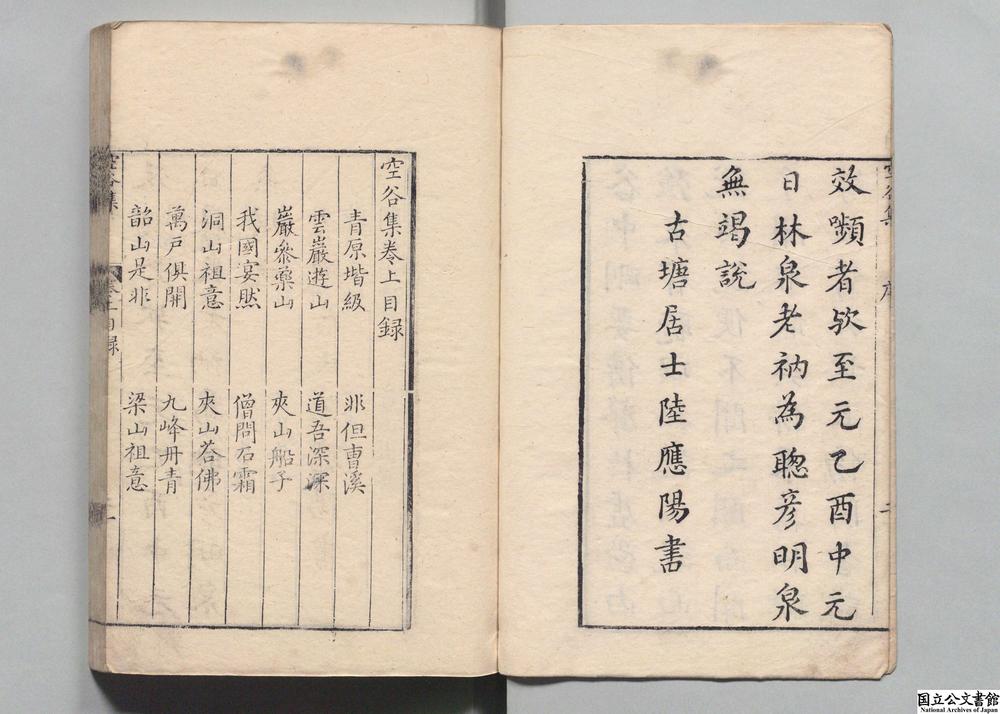 效嚬者欤至元乙酉中元
日林泉老衲為聦彥明泉
無竭說
古塘居士陸應陽書
空谷集 序
二
空谷集卷上目録
青原堦級 非但曹溪
雲巖遊山 道吾深深
巖參藥山 夾山船子
我國宴然 僧問石霜
洞山祖意 夾山荅佛
萬戸俱開 九峰丹青
韶山是非 梁山祖意
空谷集
目録
国立公文書館
National Archives of Japan